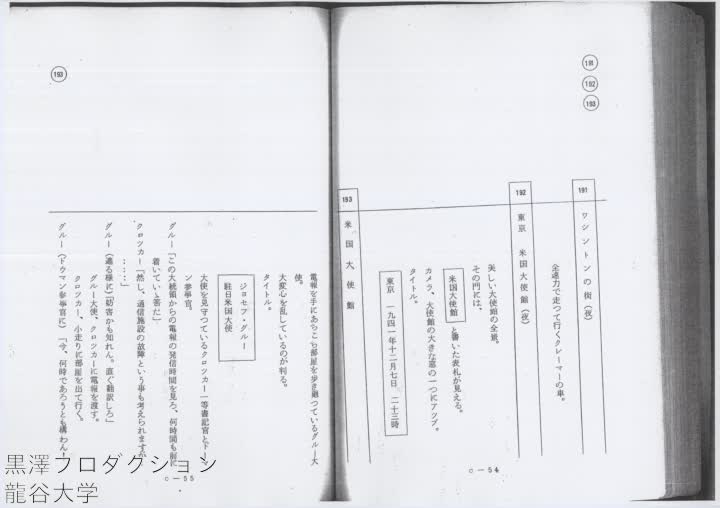 191
192
193
191 ワシントンの街（夜）
全速力で走つて行くクレーマーの車。
192 東京 米国大使館（夜）
美しい大使館の全景。
その門には、
米国大使館 と書いた表札が見える。
カメラ、大使館の大きな窓の一つにアツプ。
タイトル。
東京 一九四一年十二月七日 二十三時
C－54
193
193 米国大使館
電報を手にあちこち部屋を歩き廻つているグルー大
使。
大変心を乱しているのが判る。
タイトル。
ジョセフ・グルー
駐日米国大使
大使を見守つているクロツカー一等書記官とドーマ
ン参事官。
グルー「この大統領からの電報の発信時間を見ろ、何時間も前に
着いていゝ筈だ」
クロツカー「然し、通信施設の故障という事も考えられますが
……」
グルー（遮る様に）「妨害かも知れん。直ぐ飜訳しろ」
グルー大使、クロツカーに電報を渡す。
クロツカー、小走りに部屋を出て行く。
グルー（ドウマン参事官に）「今、何時であろうとも構わん！
C－55
黒澤プロダクション
龍谷大学